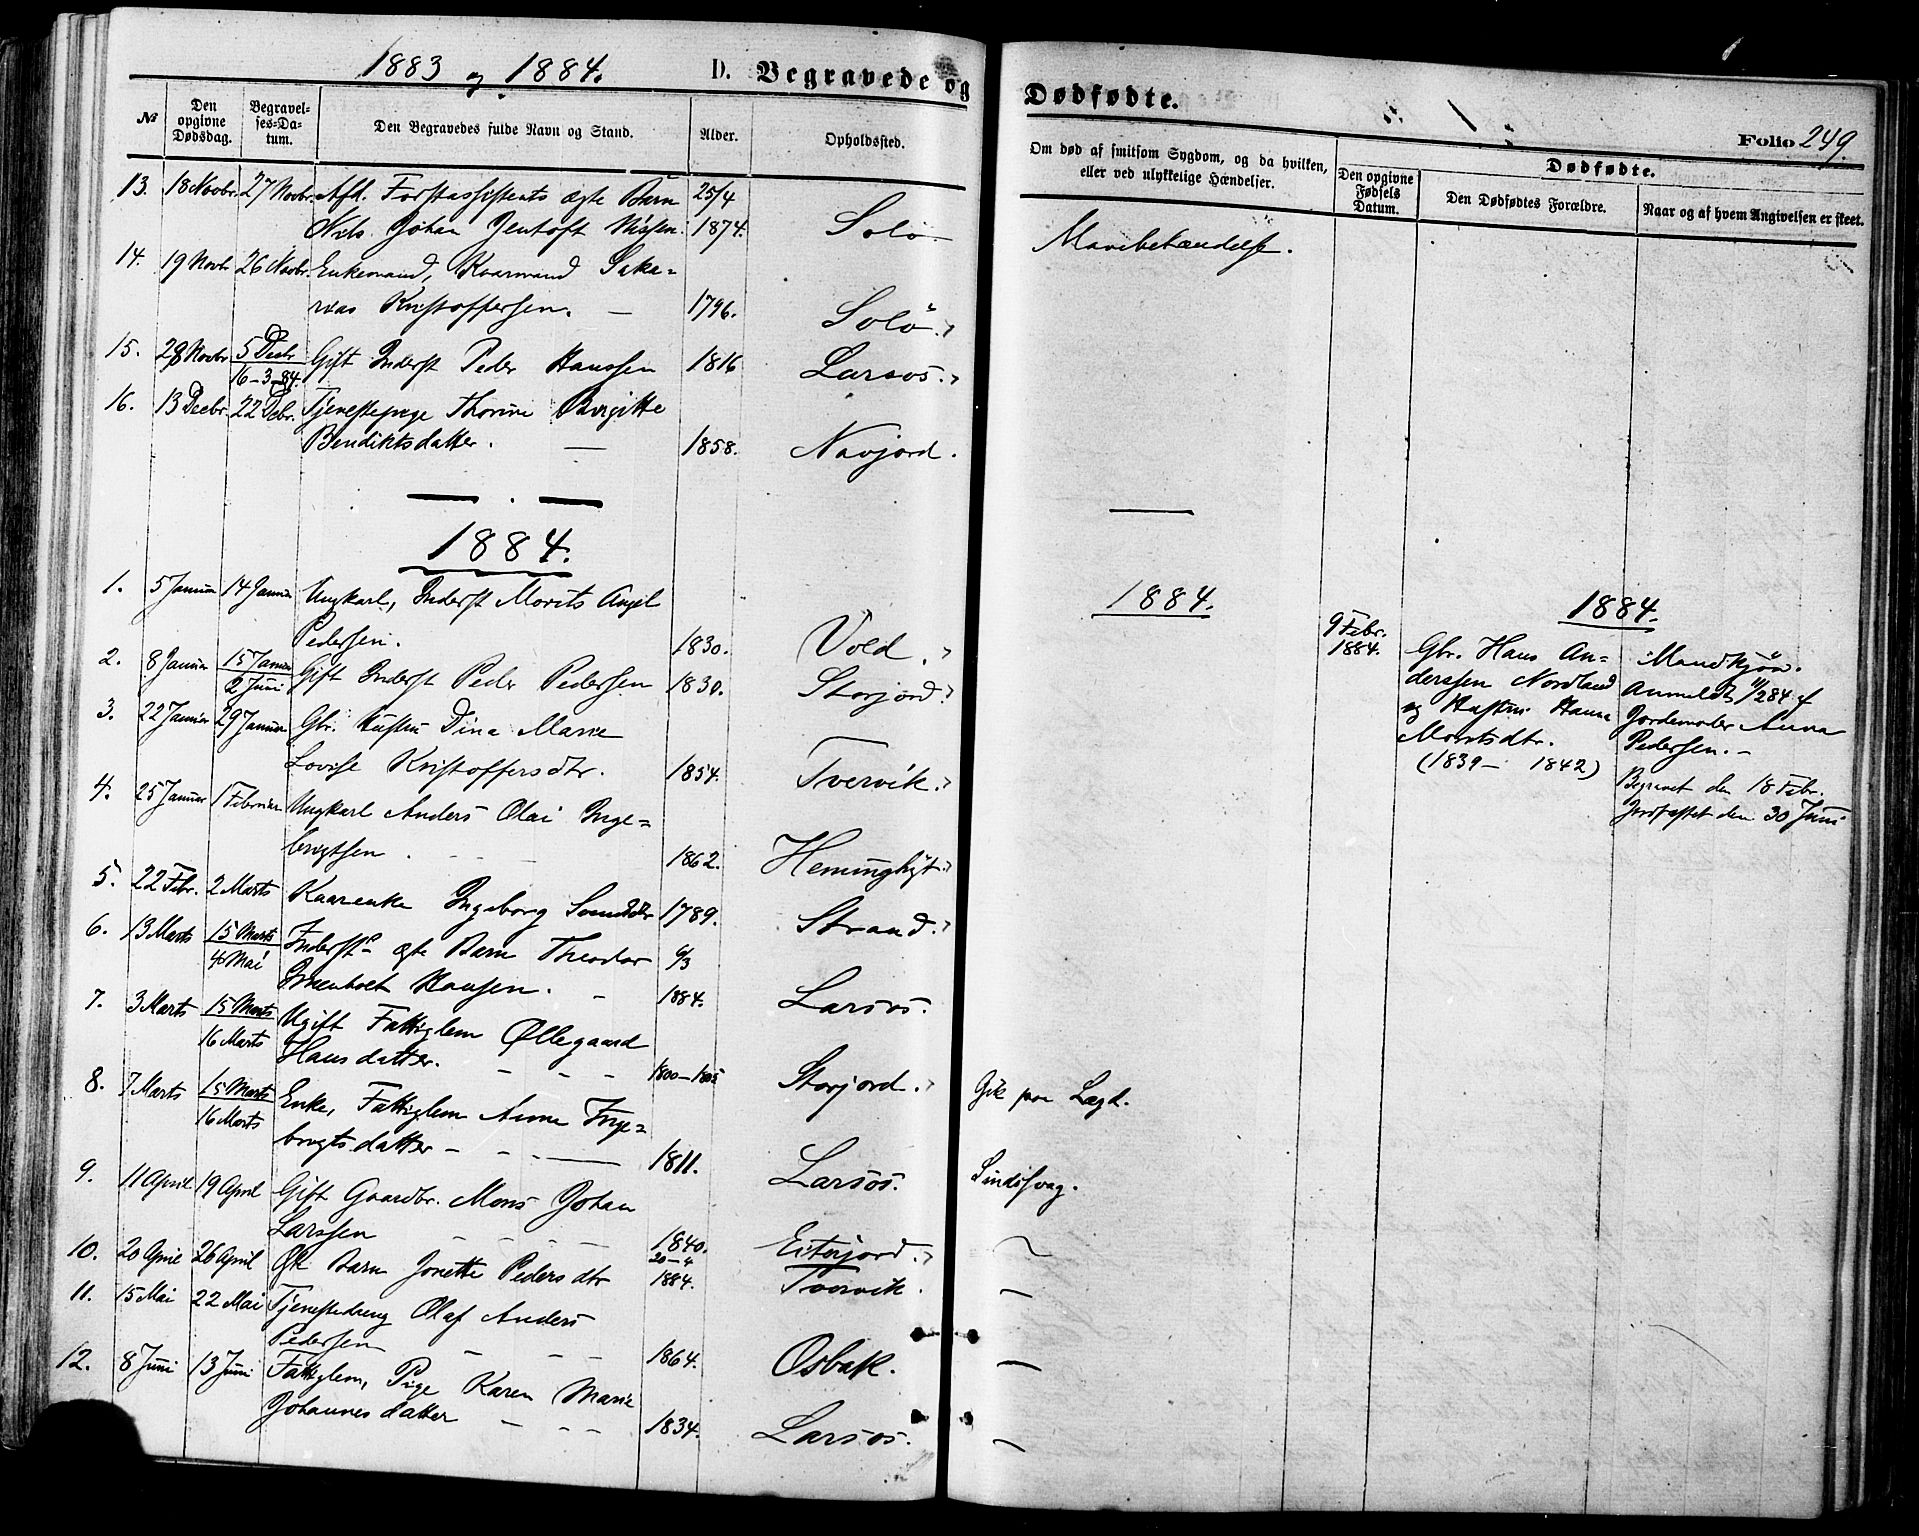 1883 og 1884.
D. Begravede og
№
Den opgivne Dødsdag.
Begravelses-Datum.
Den Begravedes fulde Navn og Stand.
Alder.
Opholdssted.
13. 18 Novbr. 27 Novbr. Afd. Forstassistents ægte Barn 25/4
Nils Johan Jentoft Nissen. 1874. Solø
14. 19 Novbr 26 Novbr. Enkemand, Kaarmand Saka=
rias Kristoffersen. — 1796. Solø.
15. 28 Novbr 5 Decbr Gift Inderst Peder Hanssen 1816 Larsos.
16-3-84.
16. 13 Decbr. 22 Debr. Tjenestepige Thorine Birgitte
Bendiktsdatter. — 1858. Navjord.
1884.
1. 5 Januar 14 Januar Ungkarl, Inderst Morits Angel
Pedersen. 1830. Vold.
2. 8 Januar 15 Januar Gift Inderst Peder Pedersen 1830. Storjord
2 Juni
3. 22 Januar 29 Januar Gbr. Hustru Dina Marie
Lovise Kristoffersdtr. 1854. Tvervik.
4. 25 Januar 1 Februar Ungkarl Anders Olai Inge=
brigtsen 1862. Heminghyt.
5. 22 Febr. 2 Marts Kaarenke Ingeborg 1789. Strand.
6. 13 Marts 15 Marts Inderst ægte Barn Theodor 6/3
4 Mai Hansen. 1884. Larsos.
7. 3 Marts 15 Marts Ugift Fattiglem Øllegaard
16 Marts Hansdatter. — — — 1800-1805 Storjord.
8. 7 Marts 15 Marts Enke, Fattiglem Anne Inge=
16 Marts brigtsdatter — — — 1811. Larsos.
9. 11 April 19 April Gift Gaardbr. Mons Johan
Larssen — — — 1840. Eiterjord.
10. 20 April 26 April Gbr Barn Jonette Pedersdtr 20-4 1884. Tvervik.
11. 15 Mai 22 Mai Tjenestedreng Olaf Anders
Pedersen — — — 1864. Osbak.
12. 8 Juni 13 Juni Fattiglem, Pige Karen Marie
Johannesdatter — — — 1834. Larsos.
Dødfødte.
Folio 249.
Om død af smitsom Sygdom, og da hvilken,
eller ved ulykkelige Hændelser.
Dødfødte.
Den opgivne Fødsels Datum.
Den Dødfødtes Forældre.
Naar og af hvem Angivelsen er skeet.
Mavebetændelse.
1884.
1884.
9 Febr.
1884.
Gbr. Hans An=
derssen Nordland
og Hustru Hanna
Moritsdtr.
(1839 — 1842)
Mandkjøn.
Anmeldt 11/2 84 af
Jordemoder Anna
Pedersen. —
Begravet den 18 Febr.
Jordfæstet den 30 Juni
Gik paa Lægd.
Sindssvag.